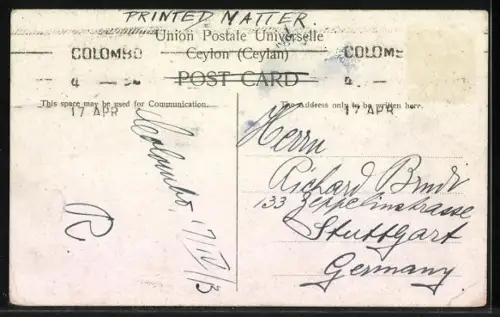 PRINTED MATTER.
Union Postale Universelle
Ceylon (Ceylan)
POST CARD
COLOMBO
4
17 APR
COLOMB
4
17 APR
This space may be used for Communication.
The Address only to be written here.
Colombo, 17/IV/13
R
Herrn
Richard
133 Zeppelinstrasse
Stuttgart
Germany